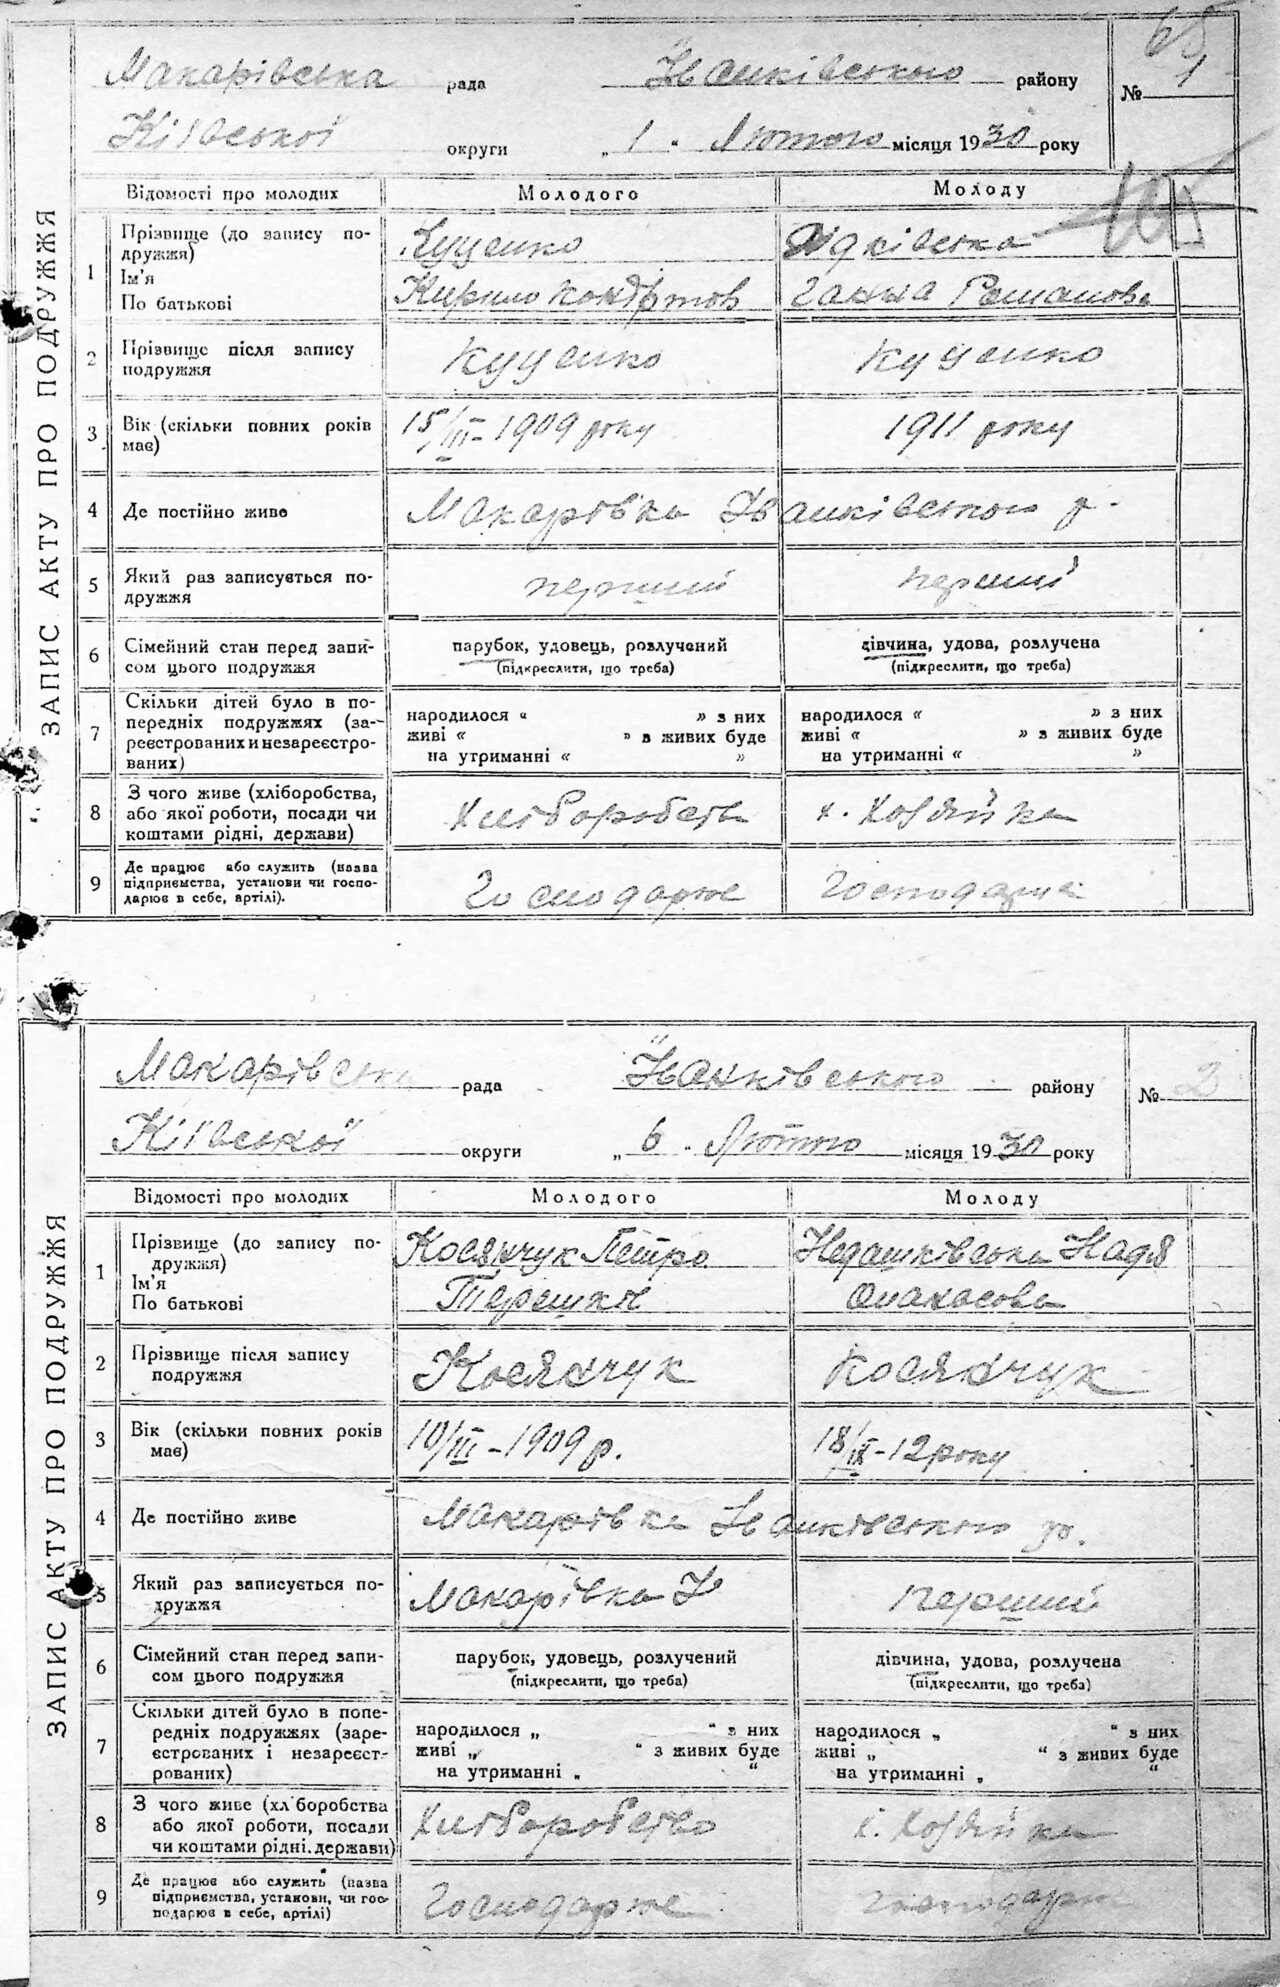 65
Макарівська рада Іванківського району № 1
Київської округи „ 1 " Лютого місяця 1930 року
ЗАПИС АКТУ ПРО ПОДРУЖЖЯ
Відомості про молодих Молодого Молоду
1 Прізвище (до запису по-
дружжя) Куценко
Ім'я
По батькові Кирило Ганна Романова
2 Прізвище після запису
подружжя Куценко Куценко
3 Вік (скільки повних років
має) 15/III-1909 року 1911 року
4 Де постійно живе Макарівка Іванківського р.
5 Який раз записується по-
дружжя перший перший
6 Сімейний стан перед запи-
сом цього подружжя парубок, удовець, розлучений дівчина, удова, розлучена
(підкреслити, що треба) (підкреслити, що треба)
7 Скільки дітей було в по-
передніх подружжях (за-
реєстрованих и незареєстро-
ваних) народилося « » з них народилося « » з них
живі « » з живих буде живі « » з живих буде
на утриманні « » на утриманні « »
8 З чого живе (хліборобства,
або якої роботи, посади чи
коштами рідні, держави) Хліборобств х. Хозяйка
9 Де працює або служить (назва
підприємства, установи чи госпо-
дарює в себе, артілі). Господарює Господарює
Макарівська рада Іванківського району № 2
Київської округи „ 6 " Лютого місяця 1930 року
ЗАПИС АКТУ ПРО ПОДРУЖЖЯ
Відомості про молодих Молодого Молоду
1 Прізвище (до запису по-
дружжя) Косянчук Петро Недашківська Надя
Ім'я
По батькові Терешків Опанасова
2 Прізвище після запису
подружжя Косянчук Косянчук
3 Вік (скільки повних років
має) 10/III-1909 р. 18/IX-12 року
4 Де постійно живе Макарівка Іванківського р.
5 Який раз записується по-
дружжя Макарівка І перший
6 Сімейний стан перед запи-
сом цього подружжя парубок, удовець, розлучений дівчина, удова, розлучена
(підкреслити, що треба) (підкреслити, що треба)
7 Скільки дітей було в попе-
редніх подружжях (заре-
єстрованих і незареєст-
рованих) народилося „ " з них народилося „ " з них
живі „ " з живих буде живі „ " з живих буде
на утриманні „ " на утриманні „ "
8 З чого живе (хліборобства
або якої роботи, посади
чи коштами рідні. держави) Хліборобство х. Хозяйка
9 Де працює або служить (назва
підприємства, установи, чи гос-
подарює в себе, артілі) Господарює Господарює